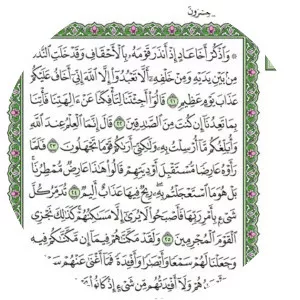 خسرون
۞ وَٱذْكُرْ أَخَا عَادٍ إِذْ أَنذَرَ قَوْمَهُۥ بِٱلْأَحْقَافِ وَقَدْ خَلَتِ ٱلنُّذُ
مِنۢ بَيْنِ يَدَيْهِ وَمِنْ خَلْفِهِۦٓ أَلَّا تَعْبُدُوٓا۟ إِلَّا ٱللَّهَ إِنِّىٓ أَخَافُ عَلَيْكُمْ
عَذَابَ يَوْمٍ عَظِيمٍ ٢١ قَالُوٓا۟ أَجِئْتَنَا لِتَأْفِكَنَا عَنْ ءَالِهَتِنَا فَأْتِنَا
بِمَا تَعِدُنَآ إِن كُنتَ مِنَ ٱلصَّـٰدِقِينَ ٢٢ قَالَ إِنَّمَا ٱلْعِلْمُ عِندَ ٱللَّهِ
وَأُبَلِّغُكُم مَّآ أُرْسِلْتُ بِهِۦ وَلَـٰكِنِّىٓ أَرَىٰكُمْ قَوْمًا تَجْهَلُونَ ٢٣ فَلَمَّا
رَأَوْهُ عَارِضًا مُّسْتَقْبِلَ أَوْدِيَتِهِمْ قَالُوا۟ هَـٰذَا عَارِضٌ مُّمْطِرُنَا ۚ
بَلْ هُوَ مَا ٱسْتَعْجَلْتُم بِهِۦ ۖ رِيحٌ فِيهَا عَذَابٌ أَلِيمٌ ٢٤ تُدَمِّرُ كُلَّ
شَىْءٍۭ بِأَمْرِ رَبِّهَا فَأَصْبَحُوا۟ لَا يُرَىٰٓ إِلَّا مَسَـٰكِنُهُمْ ۚ كَذَٰلِكَ نَجْزِى
ٱلْقَوْمَ ٱلْمُجْرِمِينَ ٢٥ وَلَقَدْ مَكَّنَّـٰهُمْ فِيمَآ إِن مَّكَّنَّـٰكُمْ فِيهِ
وَجَعَلْنَا لَهُمْ سَمْعًا وَأَبْصَـٰرًا وَأَفْـِٔدَةً فَمَآ أَغْنَىٰ عَنْهُمْ سَمْ
هُمْ وَلَآ أَفْـِٔدَتُهُم مِّن شَىْءٍ إِذْ كَانُوا۟